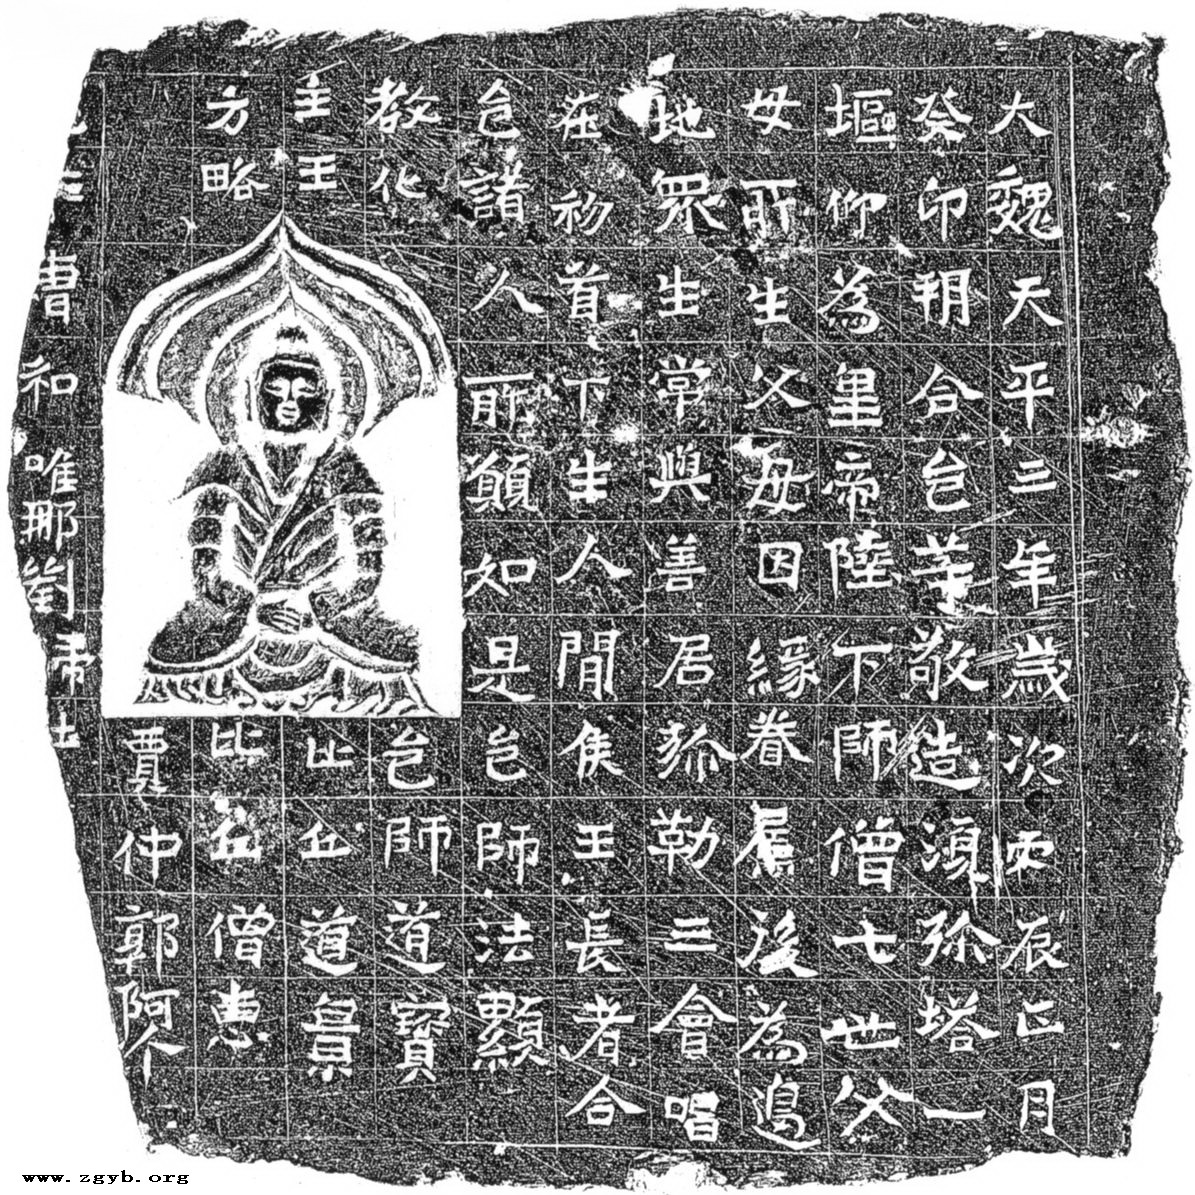 大魏天平三年歲次丙辰正月
癸卯朔合邑等敬造湏弥塔一
塸仰為皇帝陛下師僧七世父
母所生父母因緣眷屬後為邊
地眾生常與善居弥勒三會唱
在初首下生人間侯王長者合
邑諸人所願如是邑師法顯
教化邑師道寶
主王比丘道景
方略比丘僧惠
賈仲郭阿
曹和唯那劉
www.zgyb.org